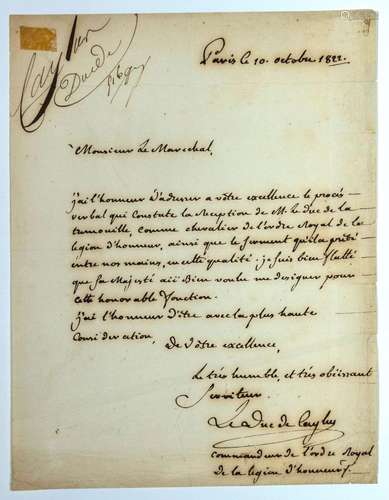 Caylus
Duc de
Paris le 10. octobre 1822.
Monsieur Le Marechal,
j'ai l'honneur D'adresser a vôtre excellence le procés
verbal qui Constate la Reception de M. Le Duc de la
tremouille, comme chevalier de l'ordre Royal de la
legion d'honneur, ainsi que le serment qu'il a prêté
entre nos mains, en cette qualité. je suis bien flatté
que Sa Majesté aii Bien voulu me designer pour
cette honorable Fonction.
j'ai l'honneur D'être avec la plus haute
Consideration.
De Vôtre excellence,
Le trés humble, et trés obéissant
Serviteur
Le Duc de Caylus
commandeur de l'ordre Royal
de la legion d'honneur